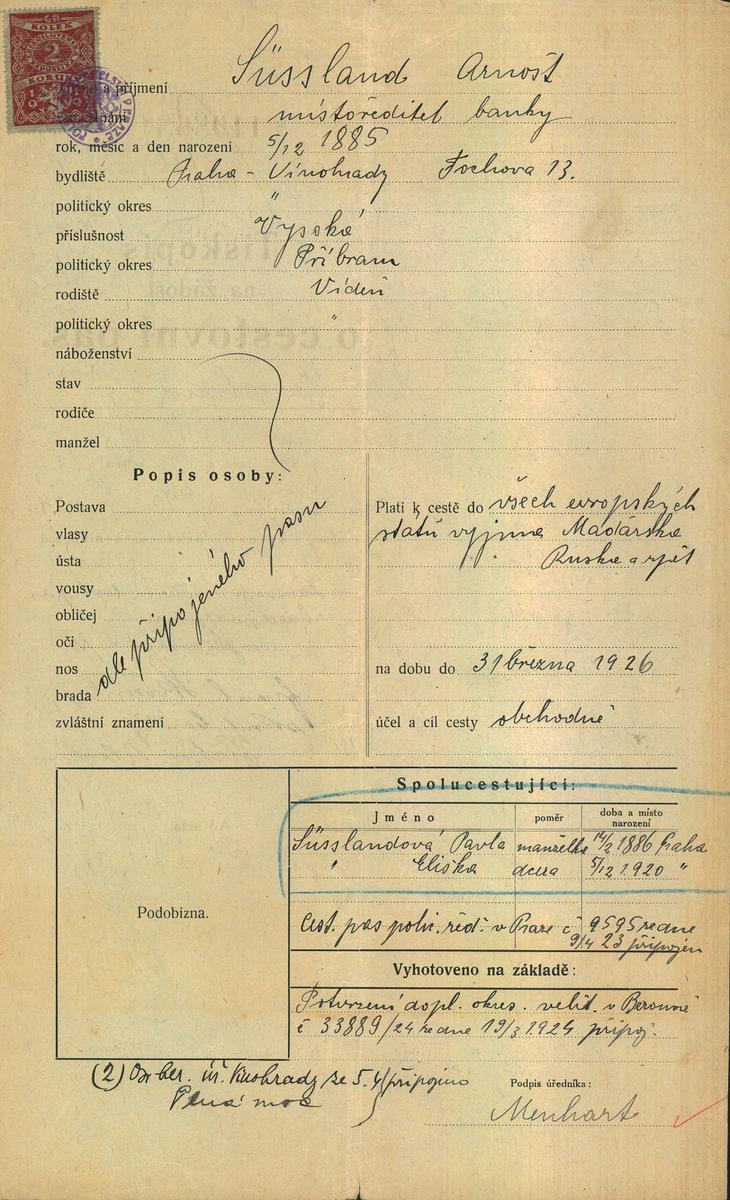 KOLEK
2
KORUNY
Süssland Arnošt
a příjmení
místoředitel banky
rok, měsíc a den narození 5/12 1885
bydliště Praha - Vinohrady Fochova 13.
politický okres "
příslušnost Vysoká
politický okres Příbram
rodiště Vídeň
politický okres "
náboženství
stav
rodiče
manžel
Popis osoby:
Postava
vlasy
ústa
vousy
obličej
oči
nos
brada
zvláštní znamení
dle připojeného pasu
Platí k cestě do všech evropských
států vyjma Maďarska
Ruska a zpět
na dobu do 31 března 1926
účel a cíl cesty obchodně
Podobizna.
Spolucestující:
Jméno poměr doba a místo narození
Süsslandová Pavla manželka 14/2 1886 Praha
" Eliška dcera 5/12 1920 "
Cest. pas polic. řed. v Praze č 9595 ze dne
9/4 23 připojen
Vyhotoveno na základě:
Potvrzení dopl. okres. velit. v Berouně
č 33889/24 ze dne 19/3 1924 připoj.
(2) ber. úř. Vinohrady ze 5.4/připojeno
Plná moc
Podpis úředníka:
Menhart